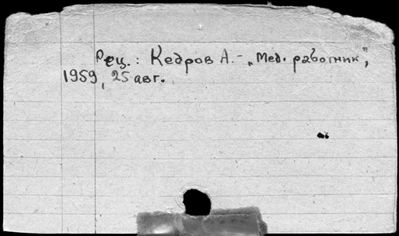 Рец.: Кедров А. – „Мед. работник",
1959, 25 авг.